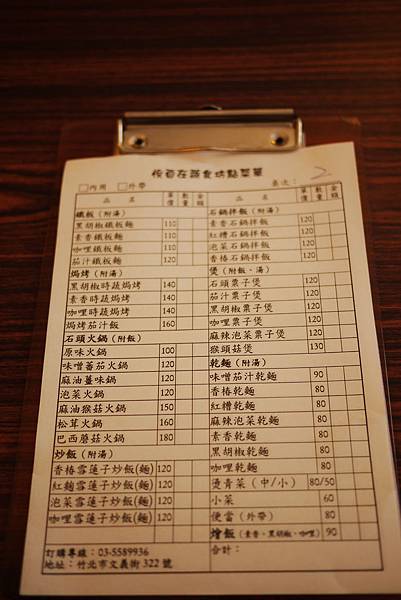 悠自在蔬食坊點菜單
□內用 □外帶 桌次：2
品名 單價 數量 金額
鐵板（附湯）
黑胡椒鐵板麵 110
素香鐵板麵 110
咖哩鐵板麵 110
茄汁鐵板麵 110
焗烤（附湯）
黑胡椒時蔬焗烤 140
素香時蔬焗烤 140
咖哩時蔬焗烤 140
焗烤茄汁飯 160
石頭火鍋（附飯）
原味火鍋 100
味噌蕃茄火鍋 120
麻油薑味鍋 120
泡菜火鍋 120
麻油猴菇火鍋 150
松茸火鍋 160
巴西蘑菇火鍋 180
炒飯（附湯）
香椿雪蓮子炒飯(麵) 120
紅麴雪蓮子炒飯(麵) 120
泡菜雪蓮子炒飯(麵) 120
咖哩雪蓮子炒飯(麵) 120
訂購專線：03-5589936
地址：竹北市文義街322號
品名 單價 數量 金額
石鍋拌飯（附湯）
素香石鍋拌飯 120
紅糟石鍋拌飯 120
泡菜石鍋拌飯 120
香椿石鍋拌飯 120
煲（附飯、湯）
石頭栗子煲 120
素香栗子煲 120
黑胡椒栗子煲 120
咖哩栗子煲 120
麻辣泡菜栗子煲 120
猴頭菇煲 130
乾麵（附湯）
味噌茄汁乾麵 90
香椿乾麵 80
紅糟乾麵 80
麻辣泡菜乾麵 80
素香乾麵 80
黑胡椒乾麵 80
咖哩乾麵 80
燙青菜（中/小） 80/50
小菜 60
便當（外帶） 80
燴飯（素香、黑胡椒、咖哩） 90
合計：